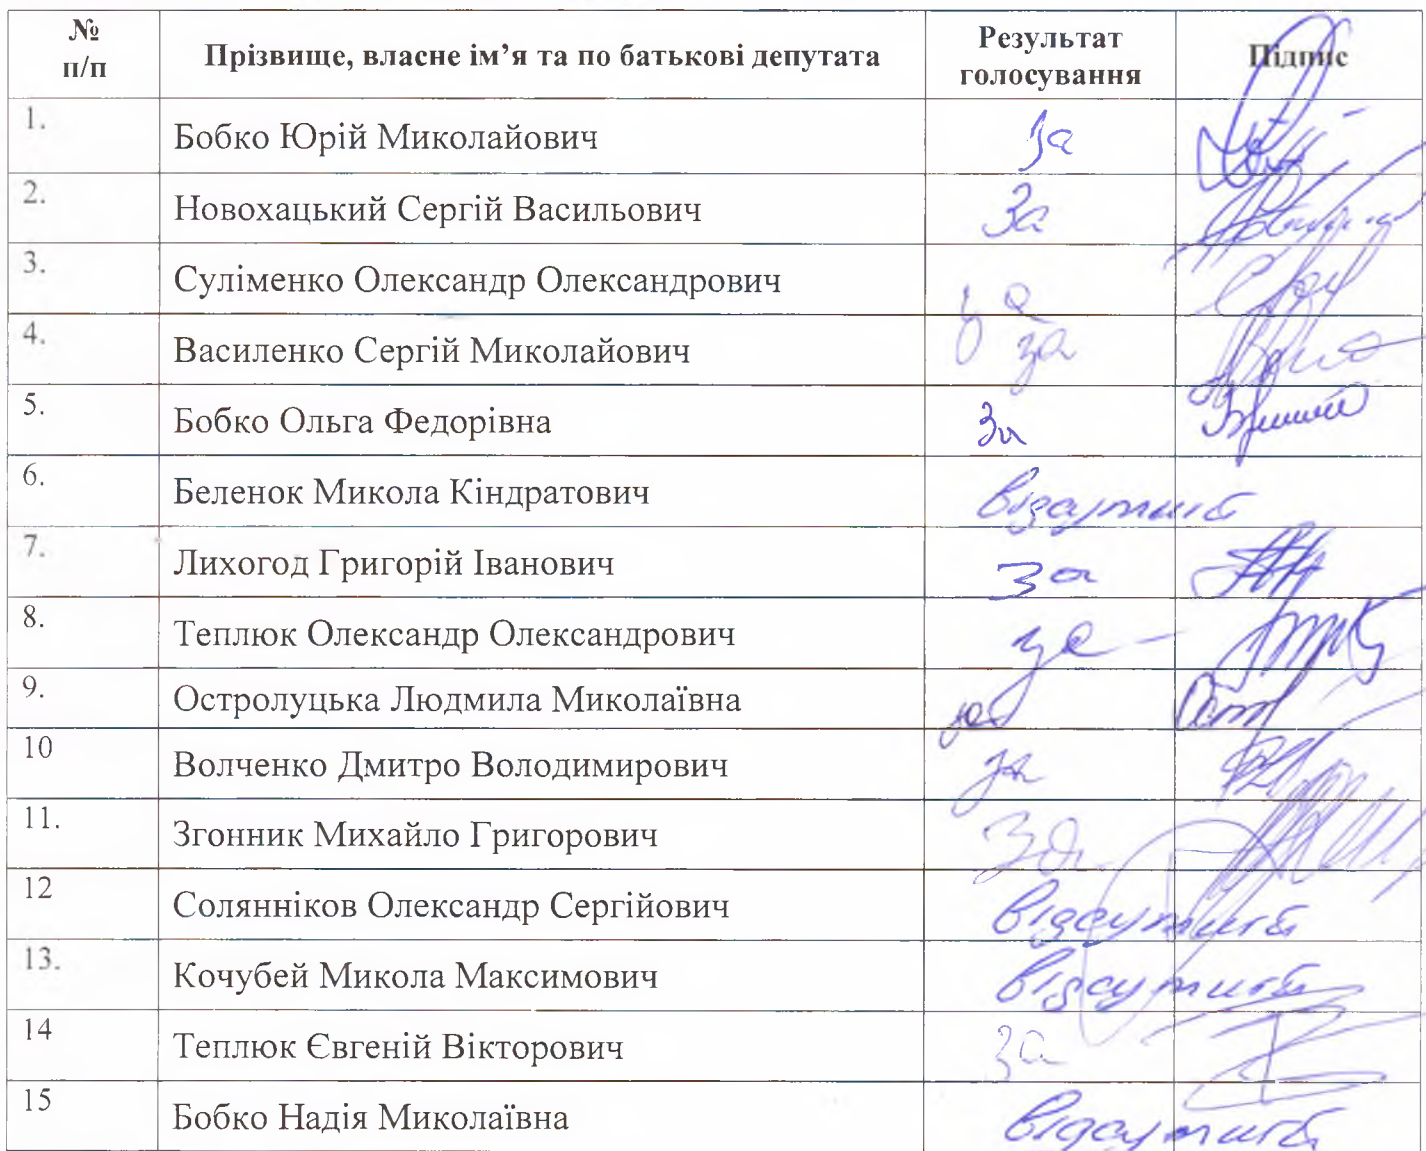 № п/п Прізвище, власне ім’я та по батькові депутата Результат голосування Підпис
1. Бобко Юрій Миколайович За
2. Новохацький Сергій Васильович За
3. Суліменко Олександр Олександрович за
4. Василенко Сергій Миколайович за
5. Бобко Ольга Федорівна За
6. Беленок Микола Кіндратович відсутній
7. Лихогод Григорій Іванович За
8. Теплюк Олександр Олександрович за
9. Остролуцька Людмила Миколаївна за
10 Волченко Дмитро Володимирович за
11. Згонник Михайло Григорович За
12 Солянніков Олександр Сергійович відсутній
13. Кочубей Микола Максимович відсутній
14 Теплюк Євгеній Вікторович за
15 Бобко Надія Миколаївна відсутній